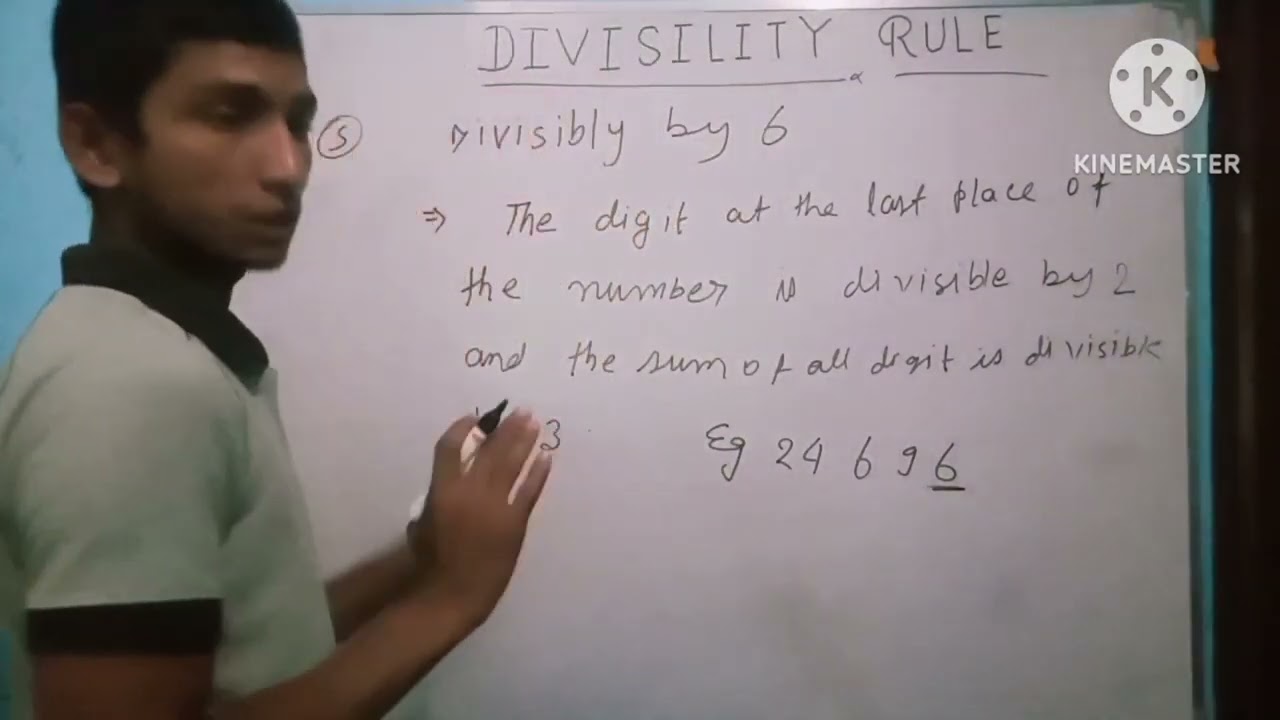 DIVISILITY RULE
K
KINEMASTER
5 Divisibly by 6
⇒ The digit at the last place of
the number is divisible by 2
and the sum of all digit is divisible
3 Eg 24 6 9 6